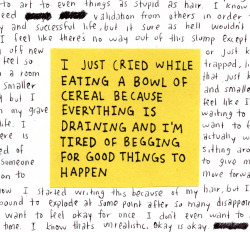 to art to even things as stupid as hair. I know
need validation from others in order
y and successful life, but it sure as hell wouldn't
I feel like there's no way out of this slump. Except
off new
feel so
a room
smaller
but I
my grave
life. I
here is
ed of
Someone
on to
or just
trapped, l
that just k
and small
feel like I
waiting to
want to f
actually w
sitting aro
to give m
move forwa
I JUST CRIED WHILE
EATING A BOWL OF
CEREAL BECAUSE
EVERYTHING IS
DRAINING AND I'M
TIRED OF BEGGING
FOR GOOD THINGS TO
HAPPEN
now I started writing this because of my hair, but I
bound to explode at some point after so many disappo
want to feel okay for once. I don't even want to
time. I know that's unrealistic. Okay is okay.